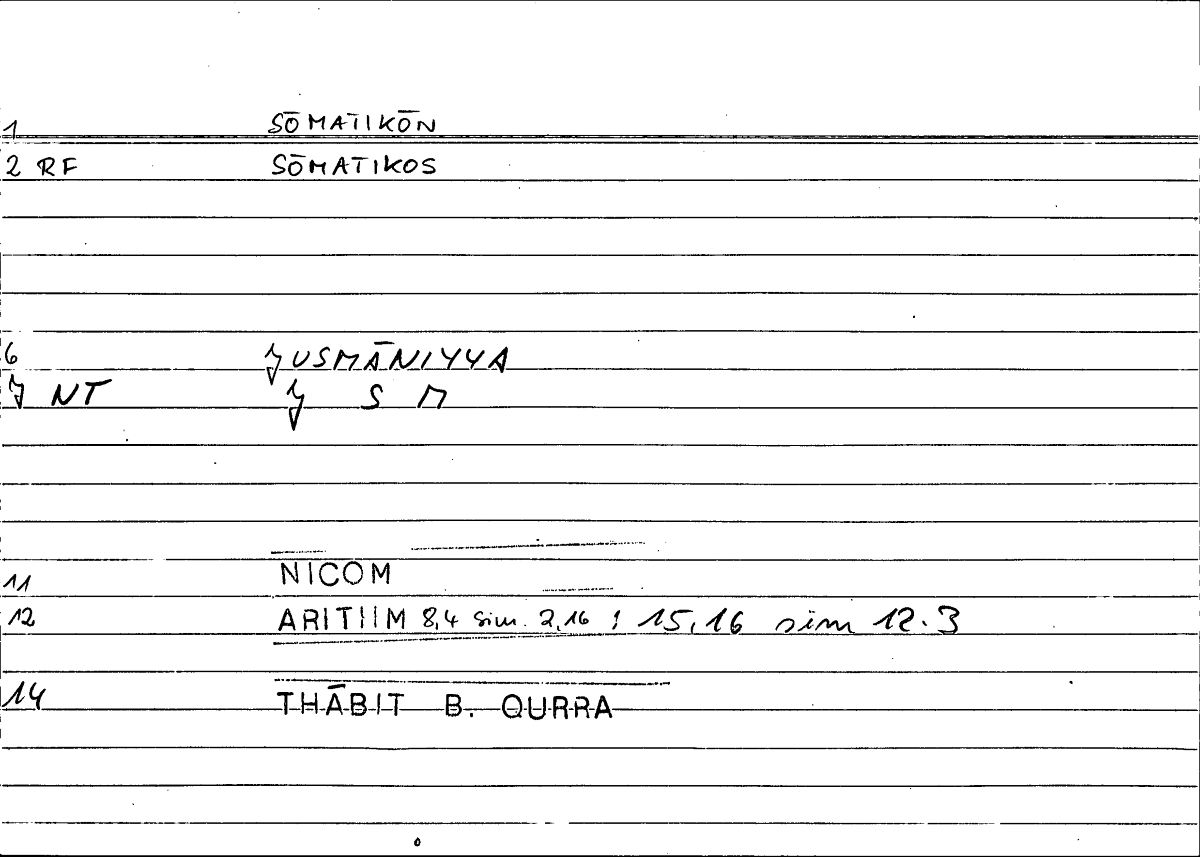 1 SŌMATIKŌN
2 RF SŌMATIKOS
6 JUSMĀNIYYA
J NT J S M
11 NICOM
12 ARITHM 8,4 sim. 2,16 ; 15,16 sim 12.3
14 THĀBIT B. QURRA